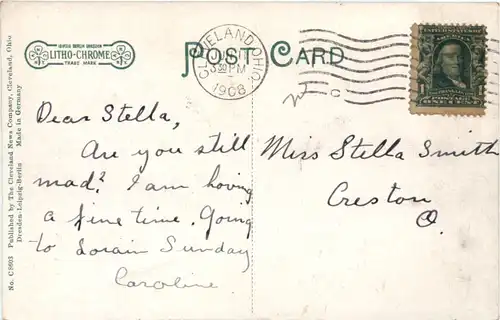 LEIPZIG BERLIN DRESDEN
LITHO-CHROME
TRADE MARK
POST CARD
CLEVELAND, OHIO.
330 PM
1908
ONE CENT
Dear Stella,
Are you still
mad? I am having
a fine time. Going
to Lorain Sunday
Caroline.
Miss Stella Smith
Creston
O.
No. C 6603 Published by The Cleveland News Company, Cleveland, Ohio
Dresden-Leipzig-Berlin Made in Germany